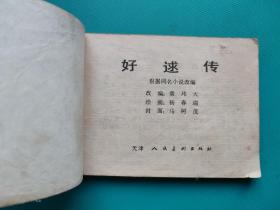 好逑传
根据同名小说改编
改编：黄玮天
绘画：杨春瑞
封面：马树茂
天津人民美术出版社